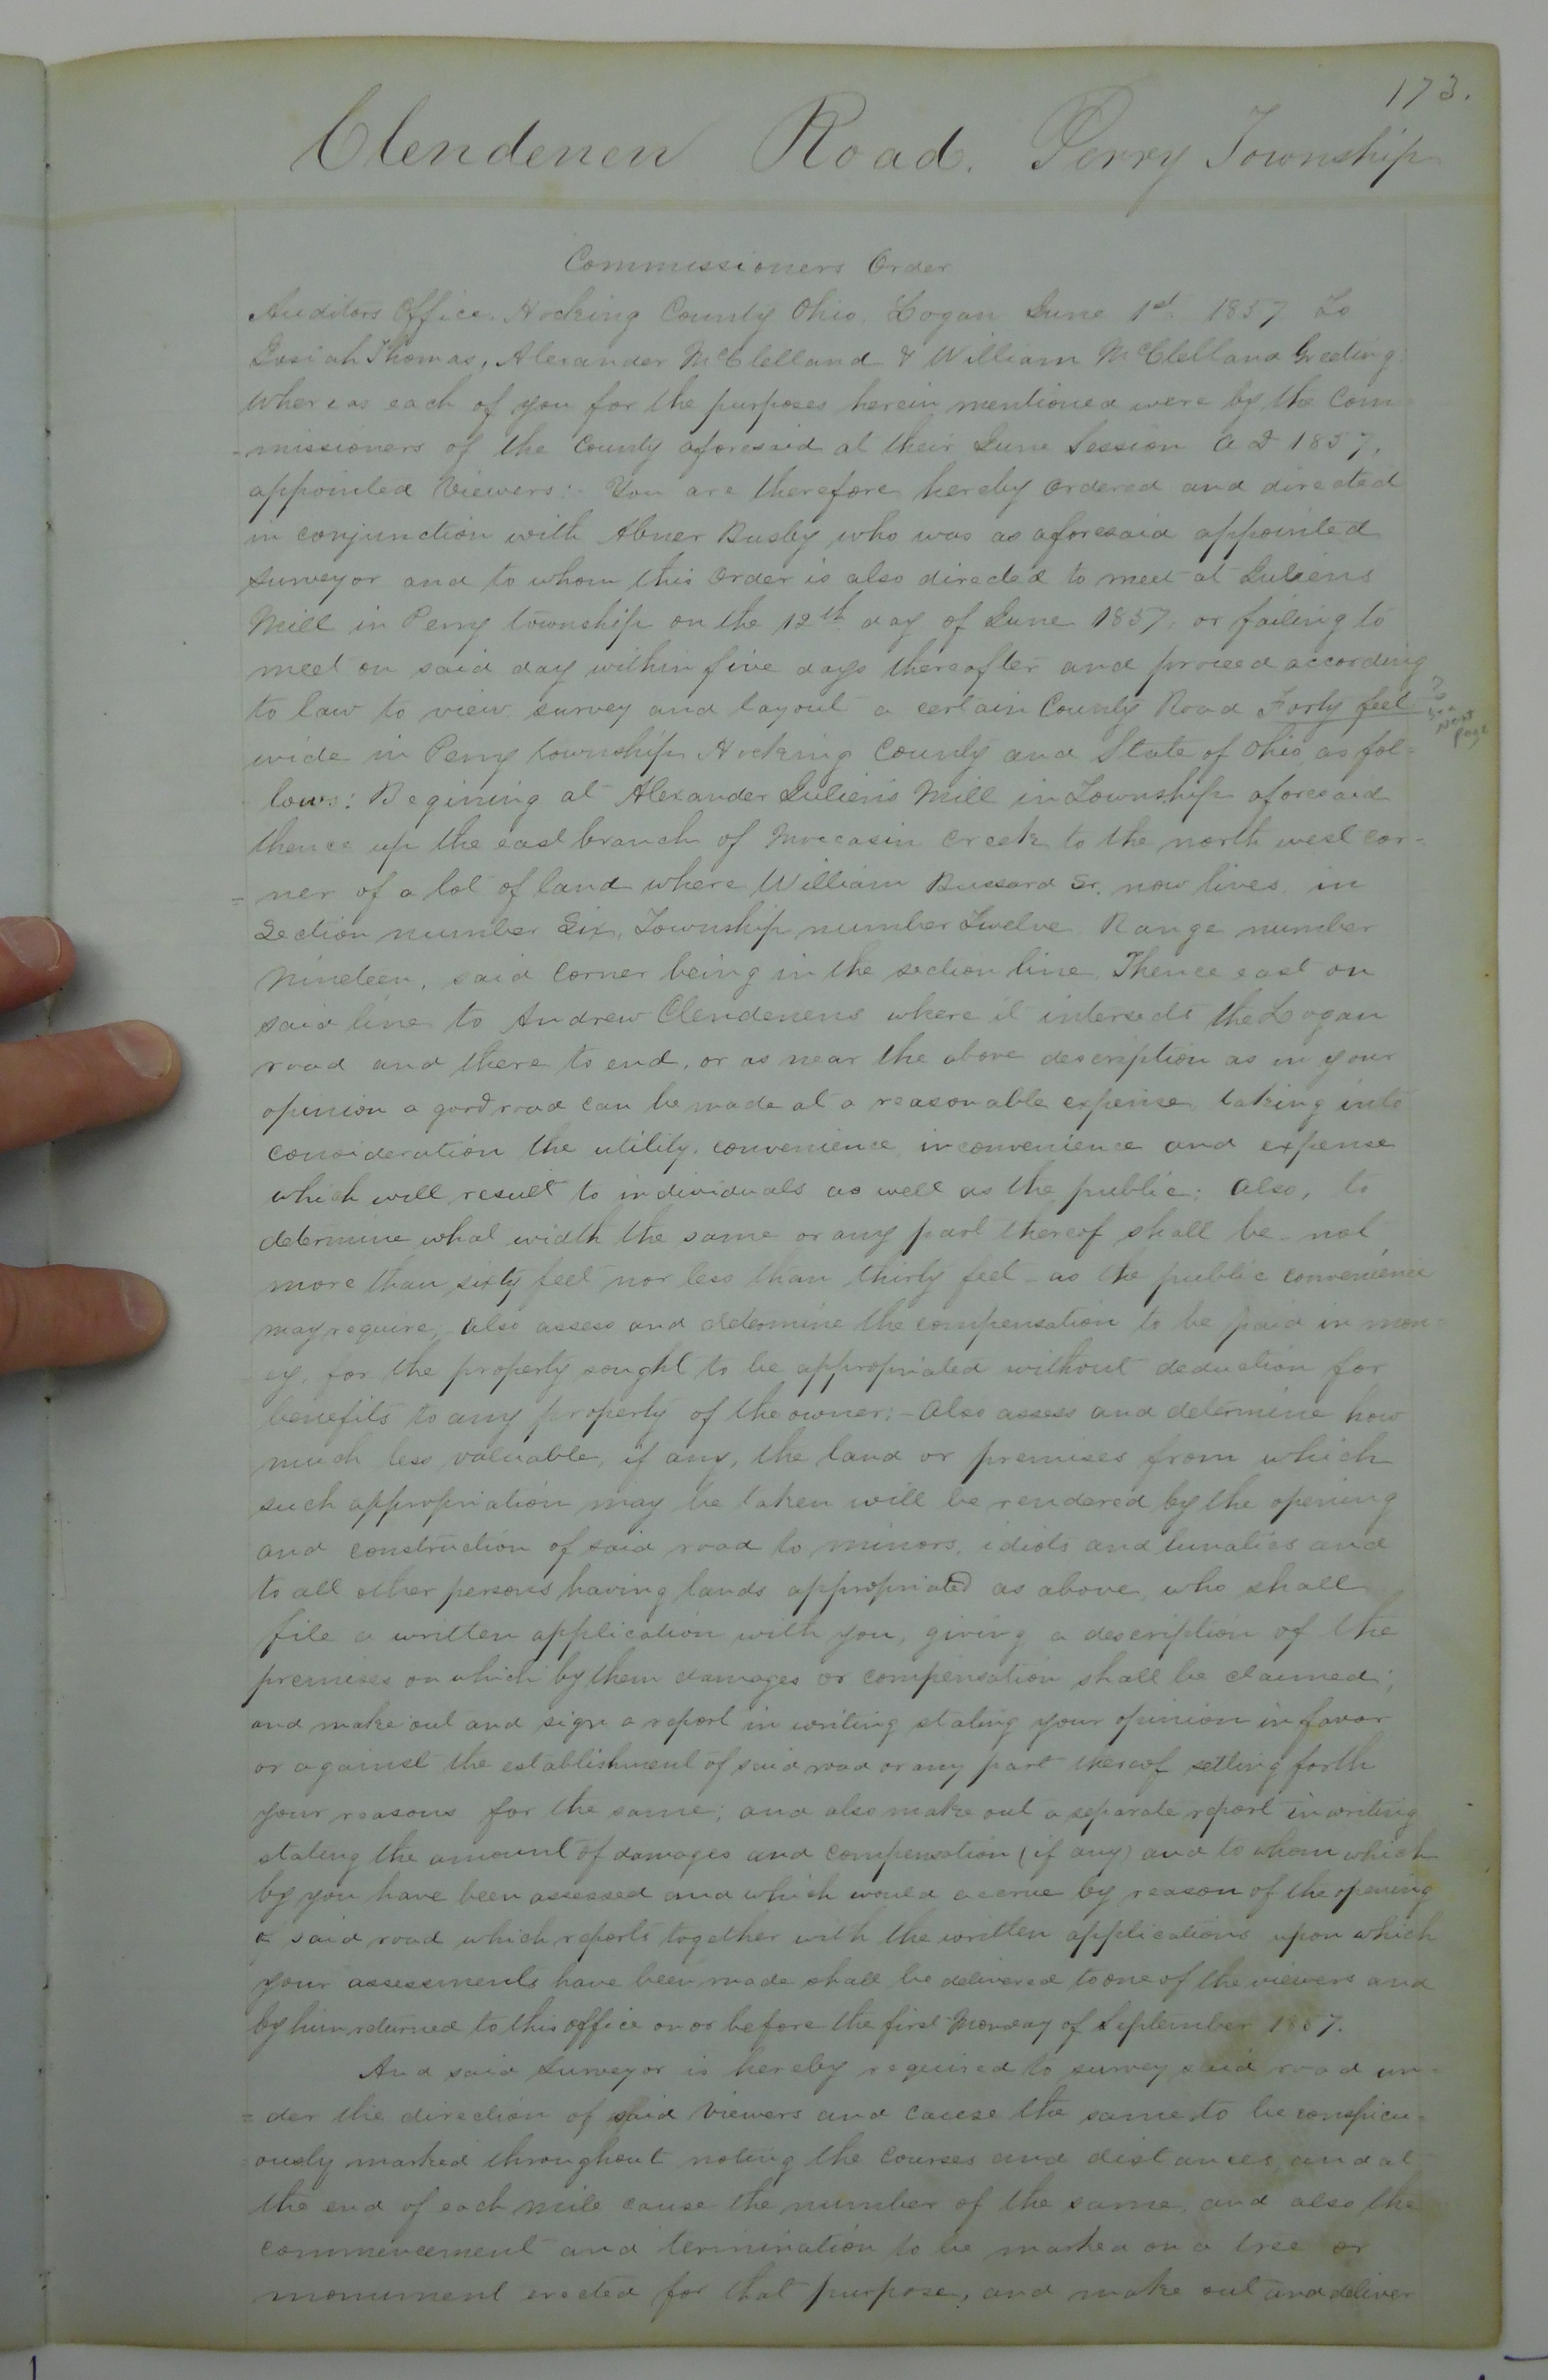 173.
Clendenen Road. Perry Township
Commissioners Order
Auditors Office. Hocking County Ohio. Logan June 1st 1857 To
Josiah Thomas, Alexander McClelland & William McClelland Greeting:
Whereas each of you for the purposes herein mentioned were by the Com=
=missioners of the County aforesaid at their June Session A D 1857,
appointed Viewers:- You are therefore hereby ordered and directed
in conjunction with Abner Busby who was as aforesaid appointed
Surveyor and to whom this order is also directed to meet at Juliens
Mill in Perry township on the 12th day of June 1857, or failing to
meet on said day within five days thereafter and proceed according
to law to view survey and layout a certain County Road Forty feet
? see next page
wide in Perry township Hocking County and State of Ohio as fol=
lows: Begining at Alexander Julien's Mill in Township aforesaid
thence up the east branch of Moccasin Creek to the north west cor=
=ner of a lot of land where William Bussard Sr. now lives in
Section number Six, Township number Twelve Range number
Nineteen, said corner being in the section line. Thence east on
said line to Andrew Clendenens where it intersects the Logan
road and there to end, or as near the above description as in your
opinion a good road can be made at a reasonable expense, taking into
consideration the utility, convenience, inconvenience and expense
which will result to individuals as well as the public: also, to
determine what width the same or any part thereof shall be - not
more than sixty feet nor less than thirty feet - as the public convenience
may require; also assess and determine the compensation to be paid in mon=
ey, for the property sought to be appropriated without deduction for
benefits to any property of the owner:- Also assess and determine how
much less valuable, if any, the land or premises from which
such appropriation may be taken will be rendered by the opening
and construction of said road to minors, idiots and lunatics and
to all other persons having lands appropriated as above, who shall
file a written application with you, giving a description of the
premises on which by them damages or compensation shall be claimed;
and make out and sign a report in writing stating your opinion in favor
or against the establishment of said road or any part thereof setting forth
your reasons for the same; and also make out a separate report in writing
stating the amount of damages and compensation (if any) and to whom which
by you have been assessed and which would accrue by reason of the opening
of said road which reports together with the written applications upon which
your assessments have been made shall be delivered to one of the viewers and
by him returned to this office on or before the first Monday of September 1857.
And said Surveyor is hereby required to survey said road un=
=der the direction of said Viewers and cause the same to be conspicu=
=ously marked throughout noting the courses and distances, and at
the end of each mile cause the number of the same, and also the
commencement and termination to be marked on a tree or
monument erected for that purpose, and make out and deliver